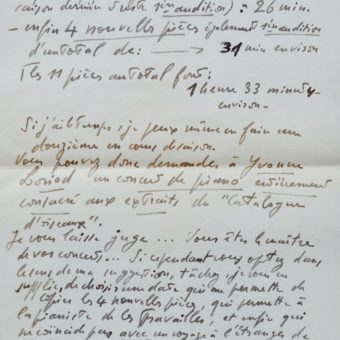 saison dernière reste in audition) : 26 min.
- enfin 4 nouvelles pièces également in audition
d'un total de : → 31 min environ
Les 11 pièces au total font :
1 heure 33 minutes
environ -
Si j'ai le temps, je peux même en faire une
douzième en cours de saison.
Vous pouvez donc demander à Yvonne
Loriod un concert de piano entièrement
consacré aux extraits du "Catalogue
d'oiseaux".
Je vous laisse juge ... Vous êtes le maître
de vos concerts ... Si cependant vous optez dans
le sens de ma suggestion, tâchez, je vous en
supplie, de choisir une date qui me permette de
copier les 4 nouvelles pièces, qui permette à
la pianiste de les travailler, et enfin qui
ne coïncide pas avec un voyage à l'étranger de